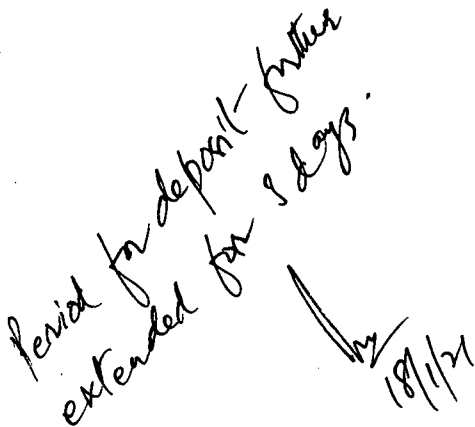 Period for deposit further
extended for 3 days.
18/1/21